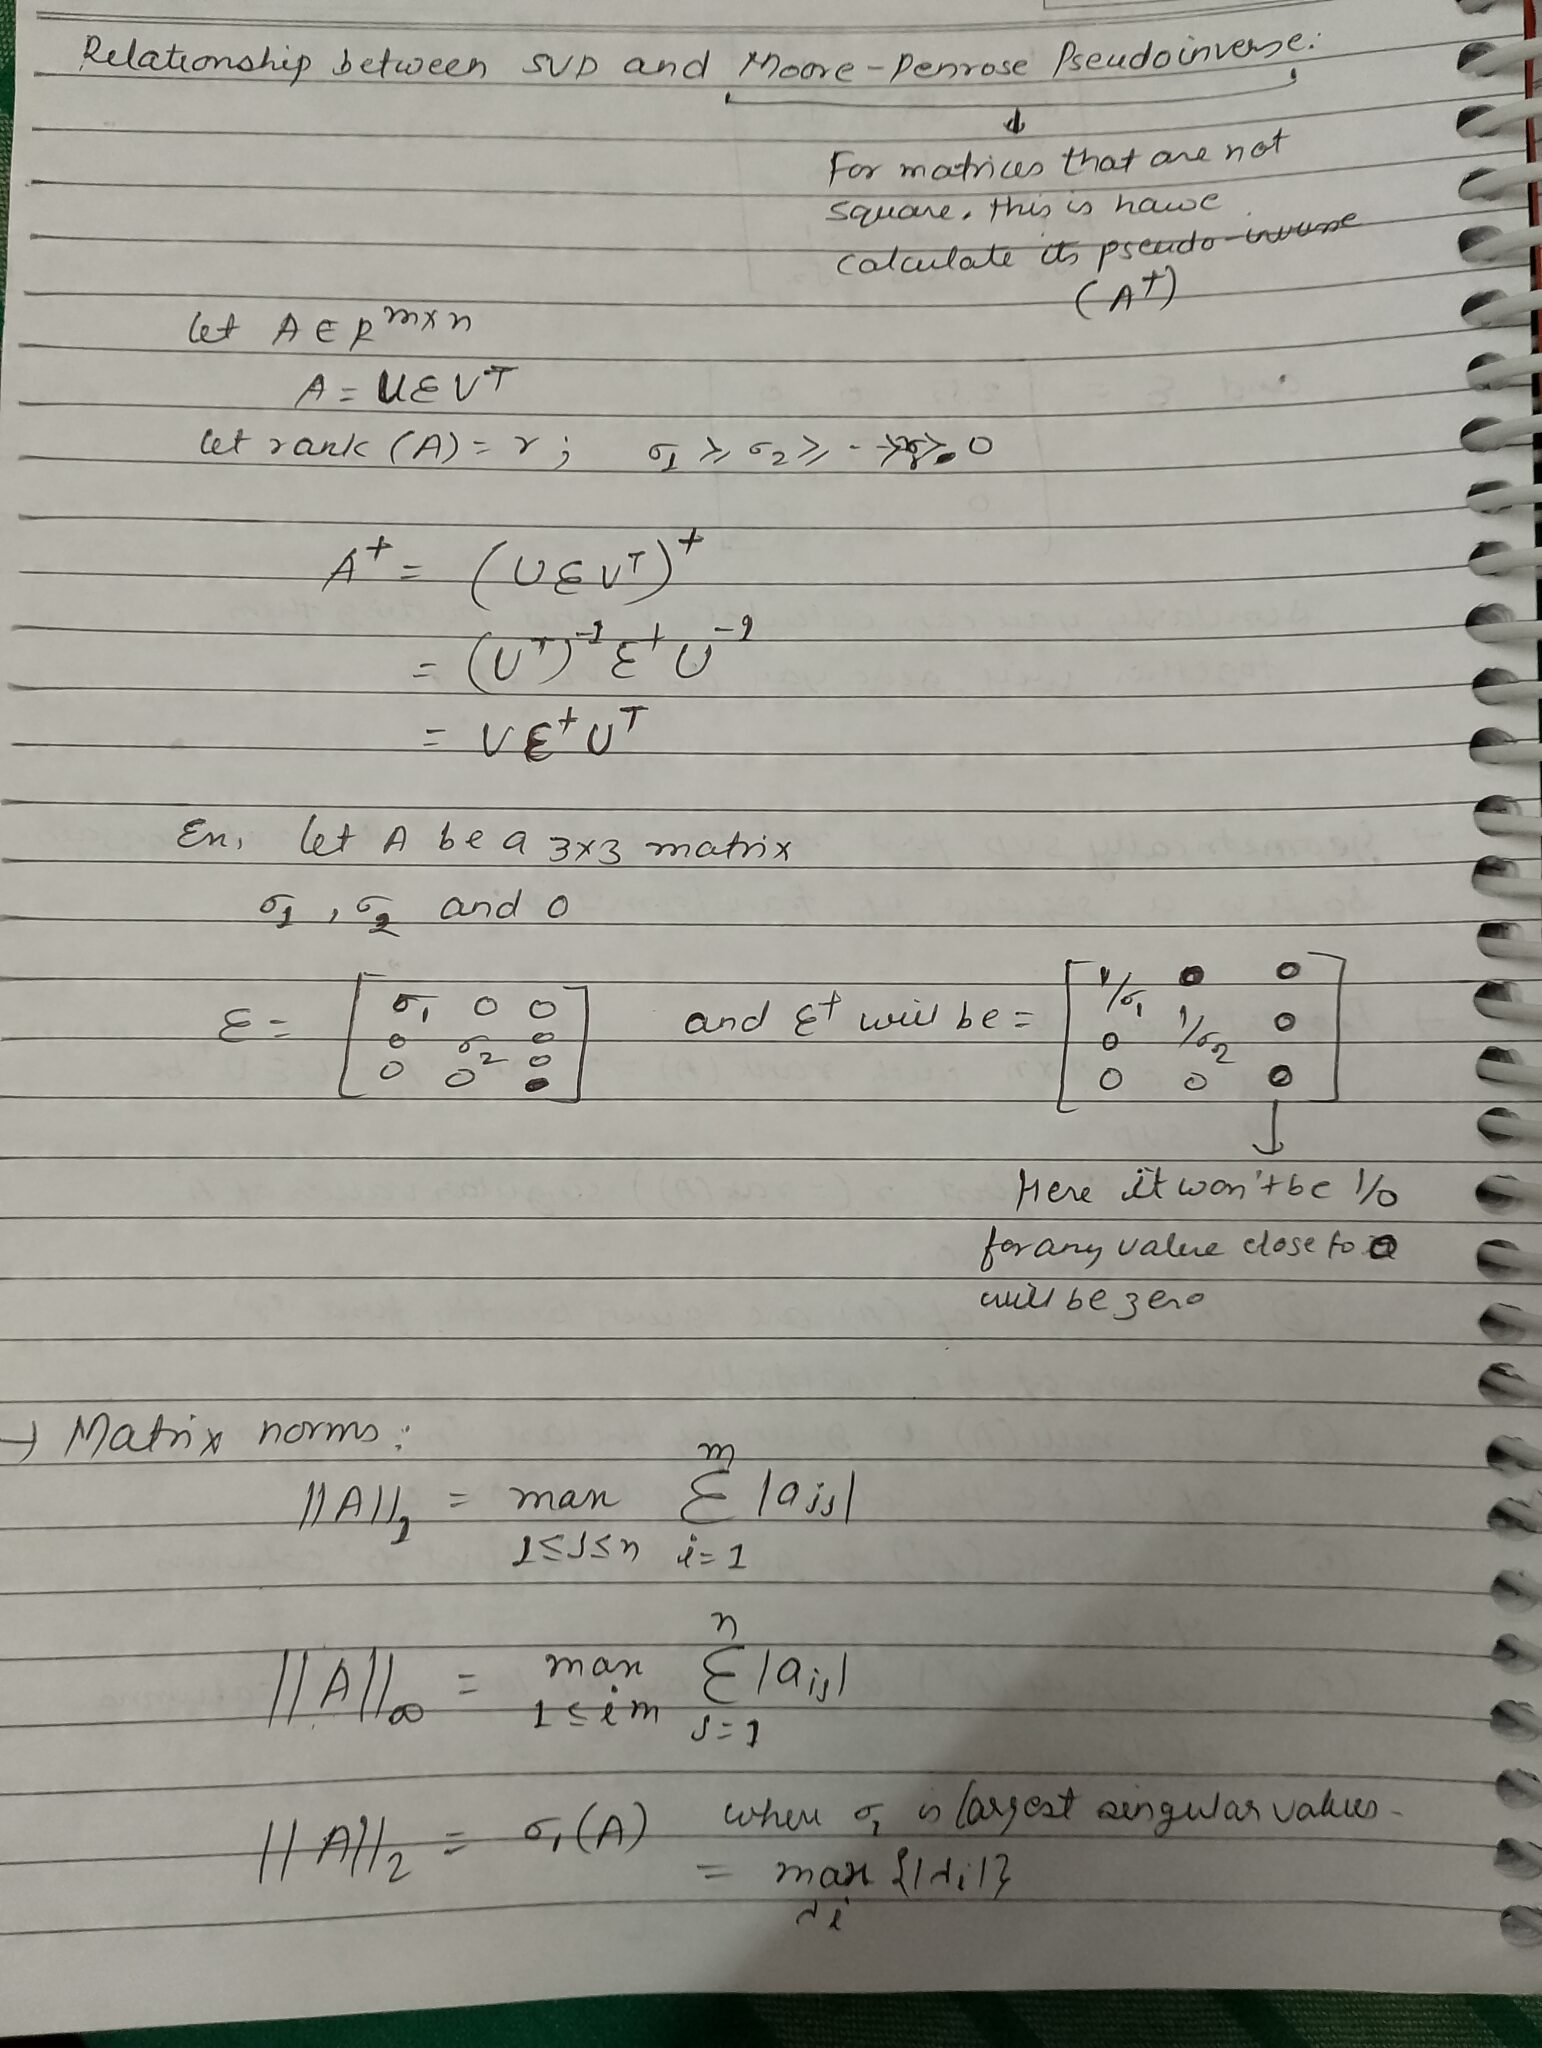 Relationship between SVD and Moore-Penrose Pseudoinverse:
For matrices that are not
square, this is hawe
calculate its pseudo-inverse
(A+)
let A ∈ R^m×n
A = UΣV^T
let rank (A) = r ; σ1 ≥ σ2 ≥ - 0
A^+ = (UΣV^T)^+
= (V^T)^-1 Σ^+ U^-1
= VΣ^+U^T
Ex, let A be a 3×3 matrix
σ1 , σ2 and 0
Σ = [ σ1 0 0 ] and Σ^+ will be = [ 1/σ1 0 0 ]
[ 0 σ2 0 ] [ 0 1/σ2 0 ]
[ 0 0 0 ] [ 0 0 0 ]
Here it won't be 1/0
for any value close to 0
will be zero
→ Matrix norms:
||A||1 = max 1≤j≤n Σ i=1 m |aij|
||A||∞ = max 1≤i m Σ j=1 n |aij|
||A||2 = σ1(A) where σ1 is largest singular values-
= max λi {|λi|}